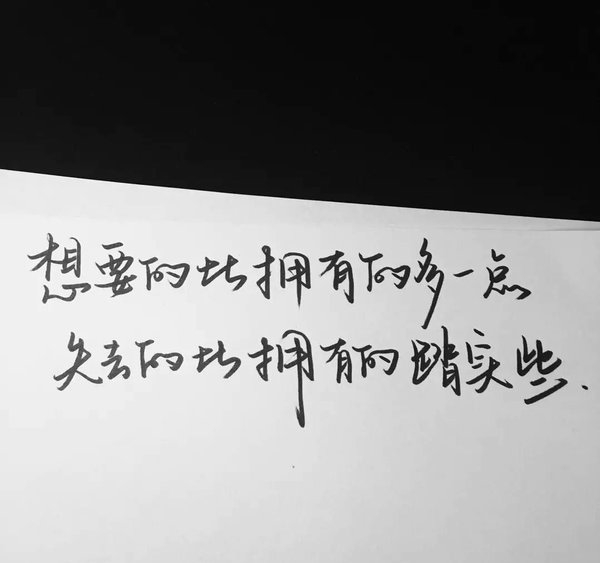 想要的比拥有的多一点
失去的比拥有的踏实些.